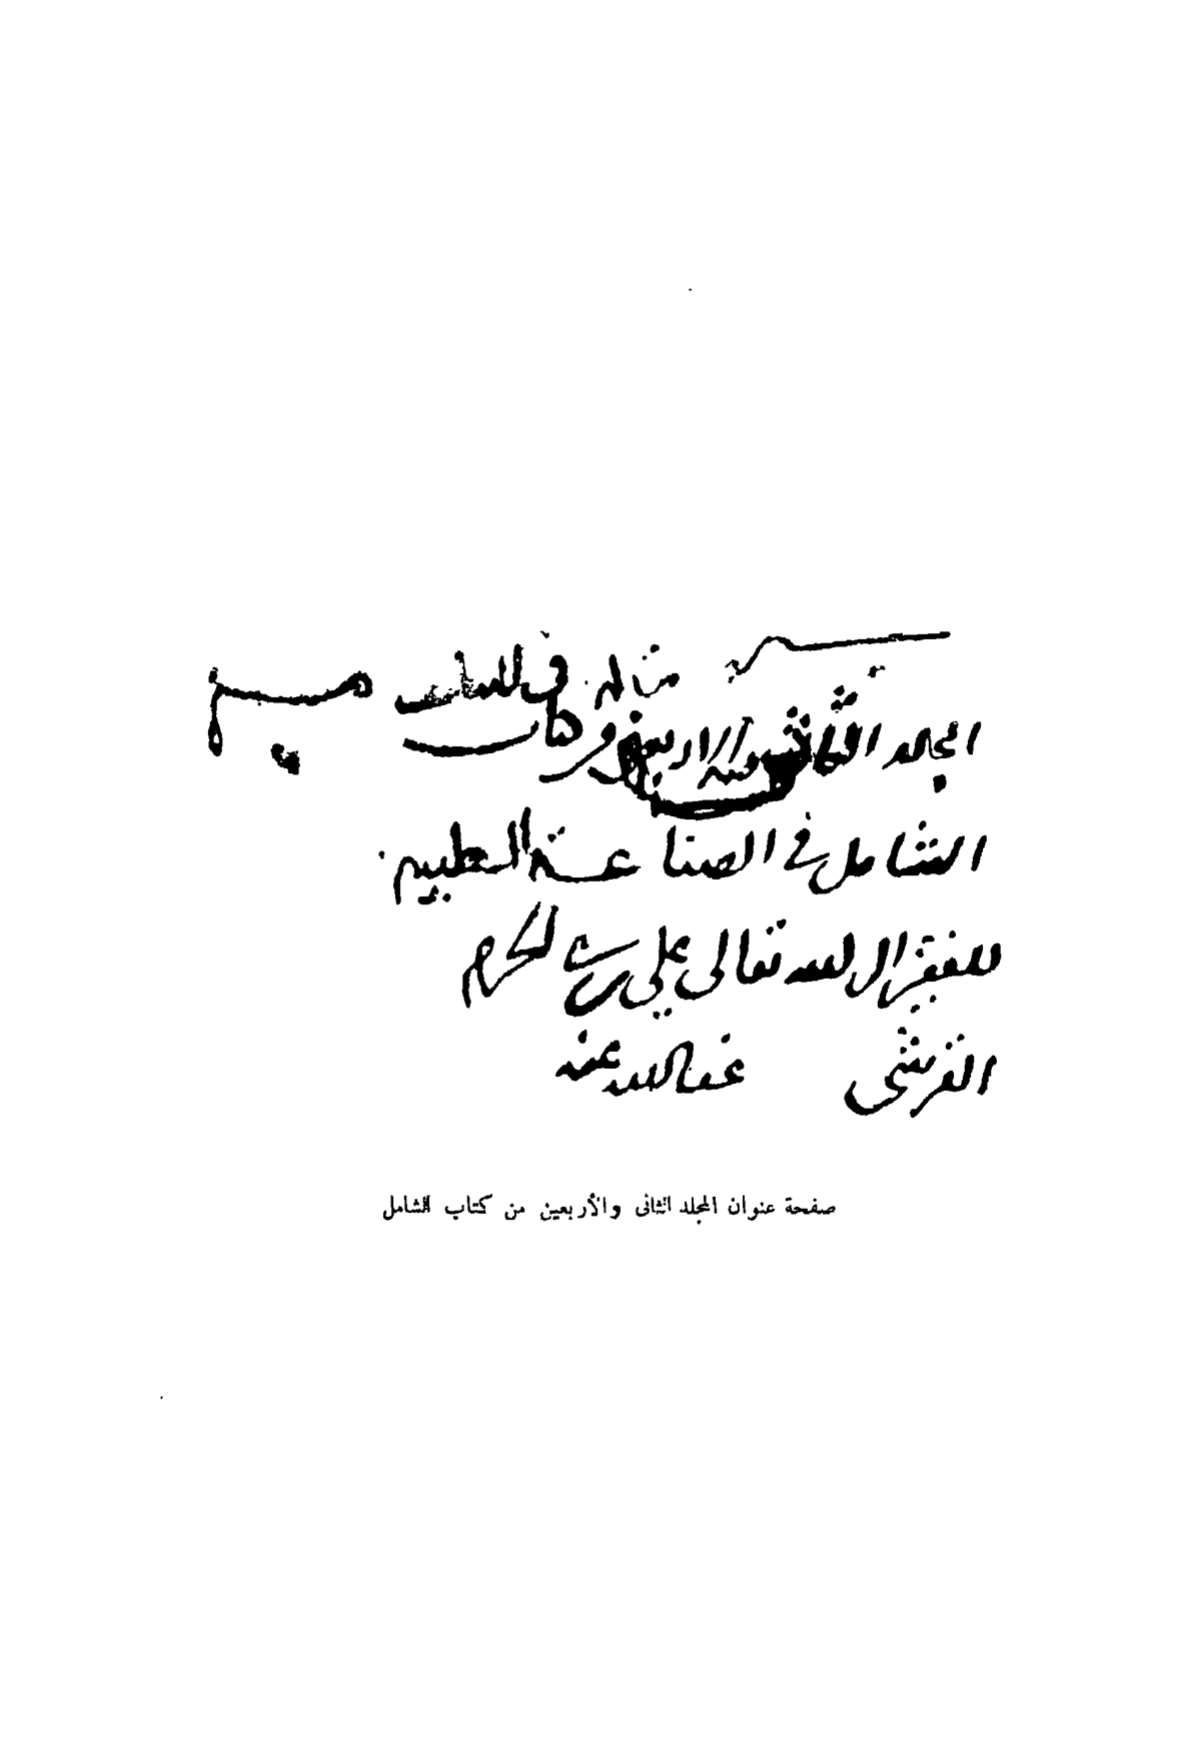 المجلد الثانى والاربعين من كتاب
الشامل فى الصناعة الطبيه
للفقير الى الله تعالى على بن ابى الحرم
القرشى عفا الله عنه
صفحة عنوان المجلد الثانى والأربعين من كتاب الشامل